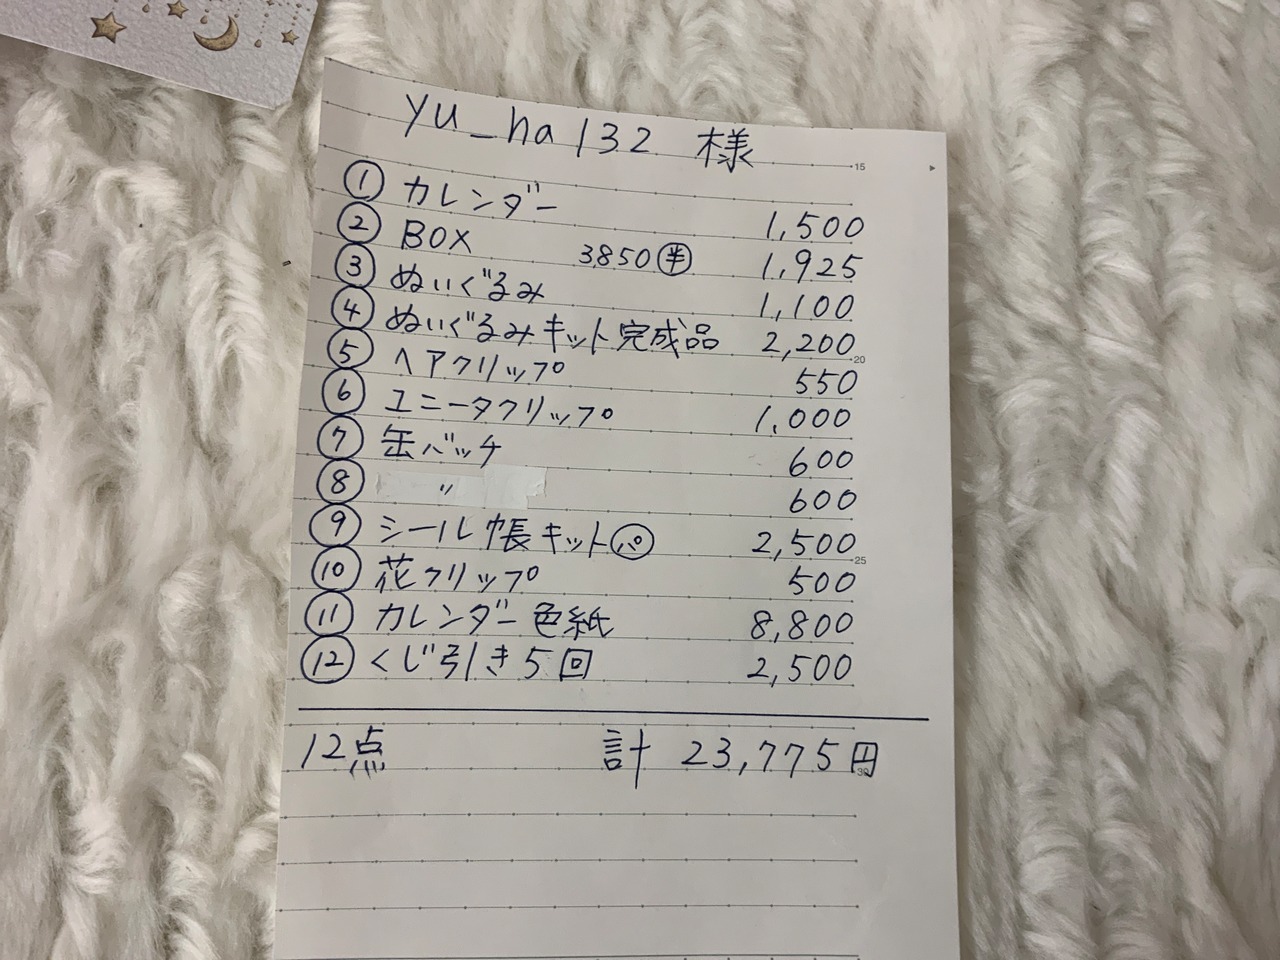 yu_ha132 様
① カレンダー 1,500
② BOX 3850㊥ 1,925
③ ぬいぐるみ 1,100
④ ぬいぐるみキット完成品 2,200
⑤ ヘアクリップ 550
⑥ ユニータクリップ 1,000
⑦ 缶バッチ 600
⑧ 〃 600
⑨ シール帳キットⓅ 2,500
⑩ 花クリップ 500
⑪ カレンダー色紙 8,800
⑫ くじ引き5回 2,500
12点 計 23,775円
15
20
25
30